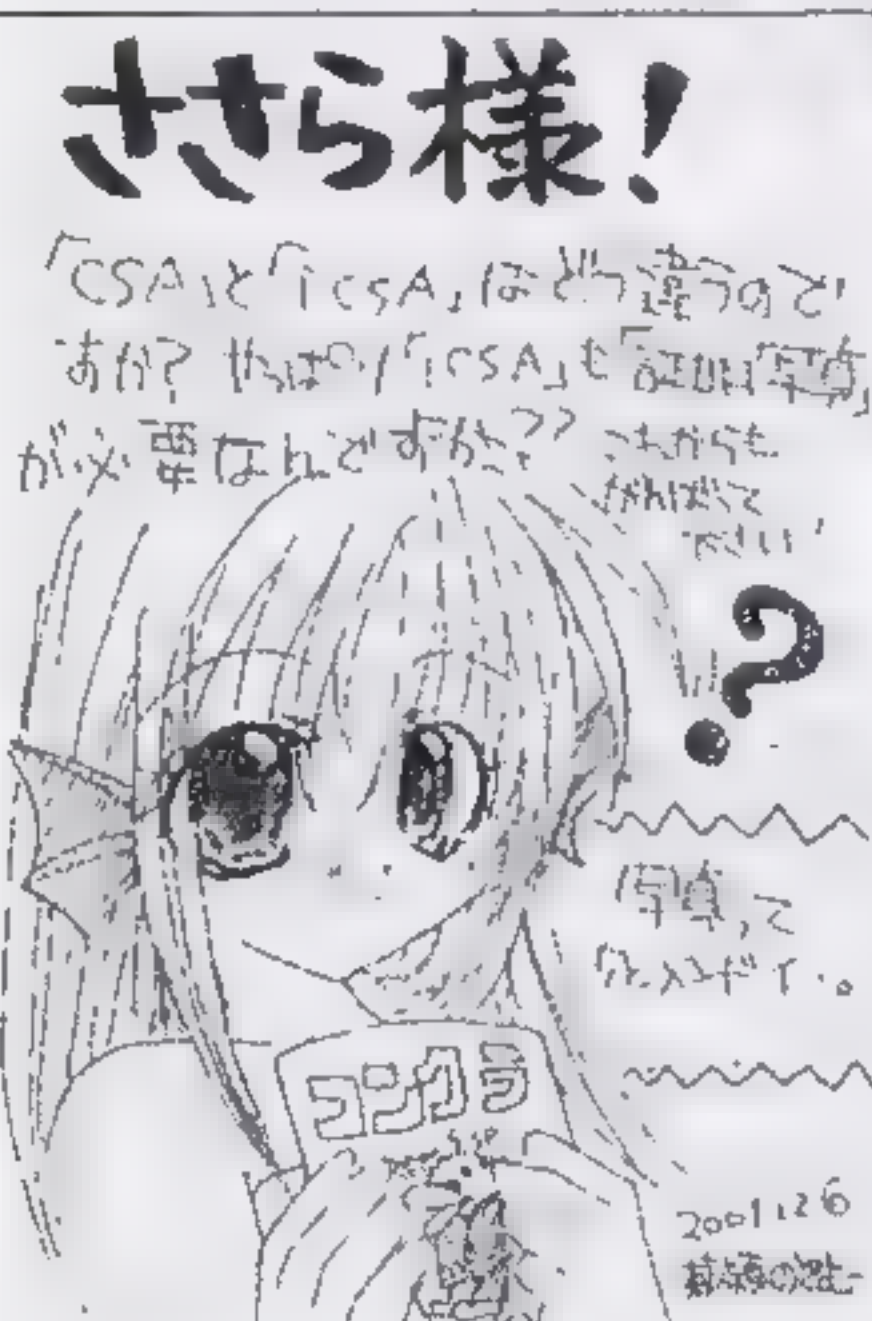 ささら様!
「CSA」と「iCSA」はどう違うので
すか? やっぱり「iCSA」も「証明写真」
が必要なんですか?? これからも
がんばって
下さい!
?
写真って
コンクラ
2001.26